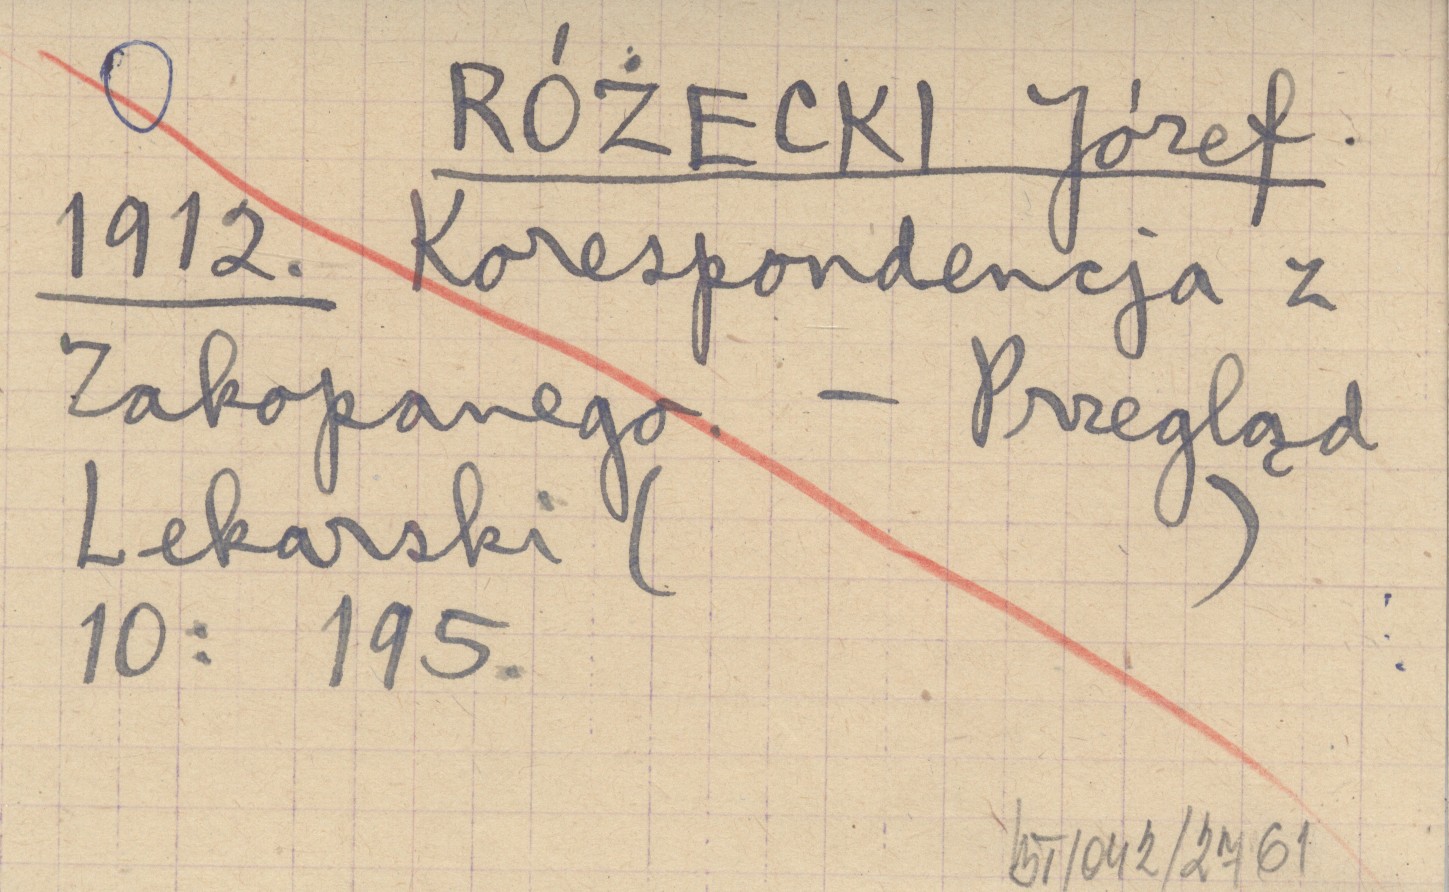 RÓŻECKI Józef.
1912. Korespondencja z
Zakopanego. — Przegląd
Lekarski ( )
10: 195.
/042/2761